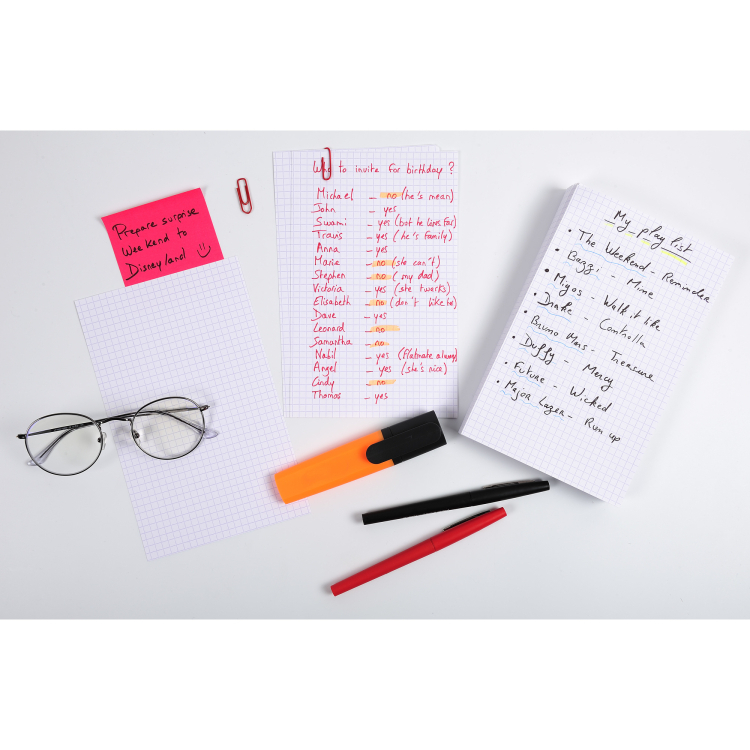 Prepare surprise
Weekend to
Disneyland
Who to invite for birthday ?
Michael - no (he's mean)
John - yes
Swami - yes (but he lives far)
Travis - yes (he's family)
Anna - yes
Marie - no (she can't)
Stephen - no (my dad)
Victoria - yes (she twerks)
Elisabeth - no (don't like her)
Dave - yes
Leonard - no
Samantha - no
Nabil - yes (flatmate
Angel - yes (she's nice)
Cindy - no
Thomas - yes
My play list
• The Weekend - Reminder
• Bazzi - Mine
• Migos - Walk it like
• Drake - Controlla
• Bruno Mars - Treasure
• Duffy - Mercy
• Future - Wicked
• Major Lazer - Run up